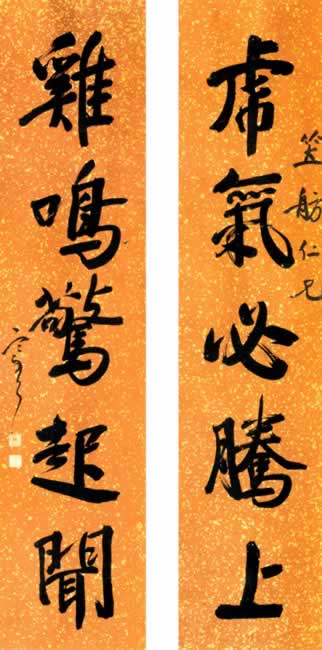 笠舫仁兄
虎氣必騰上
雞鳴驚起聞